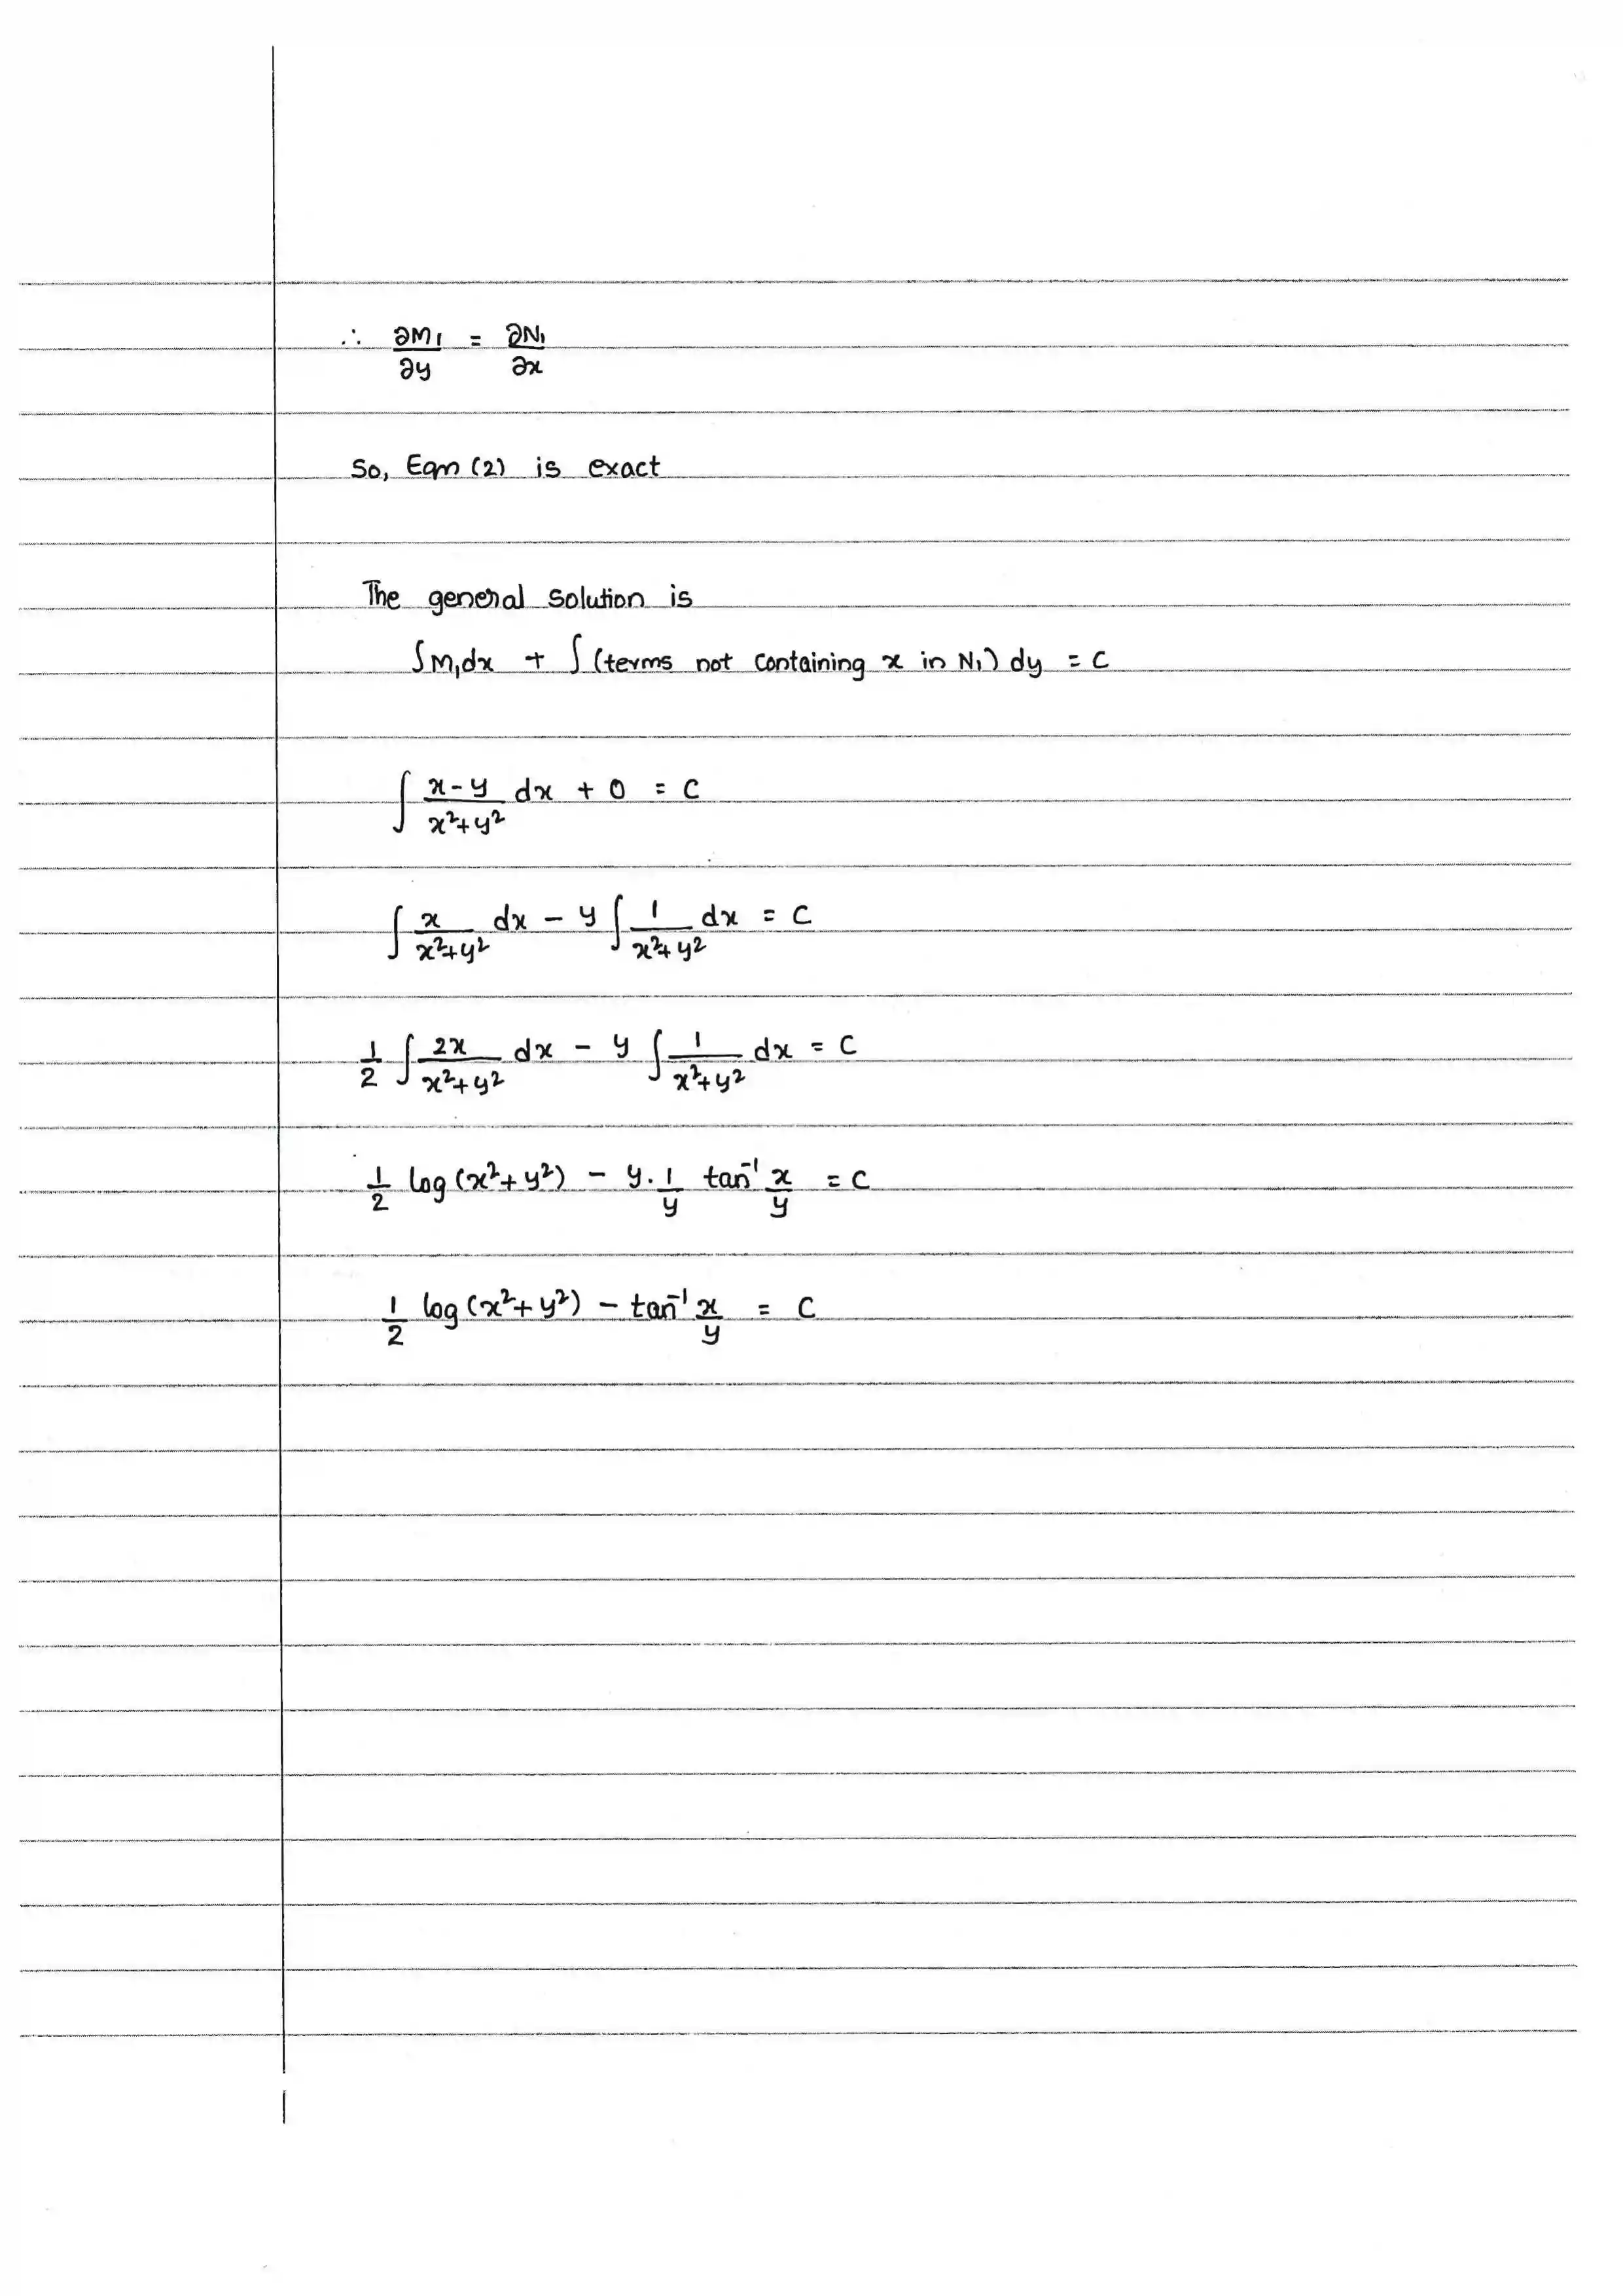 ∴ ∂M₁/∂y = ∂N₁/∂x
So, Eqn (2) is exact
The general solution is
∫M₁dx + ∫(terms not containing x in N₁) dy = C
∫ (x-y)/(x²+y²) dx + 0 = C
∫ x/(x²+y²) dx - y ∫ 1/(x²+y²) dx = C
1/2 ∫ 2x/(x²+y²) dx - y ∫ 1/(x²+y²) dx = C
1/2 log (x²+y²) - y. 1/y tan⁻¹ x/y = C
1/2 log (x²+y²) - tan⁻¹ x/y = C